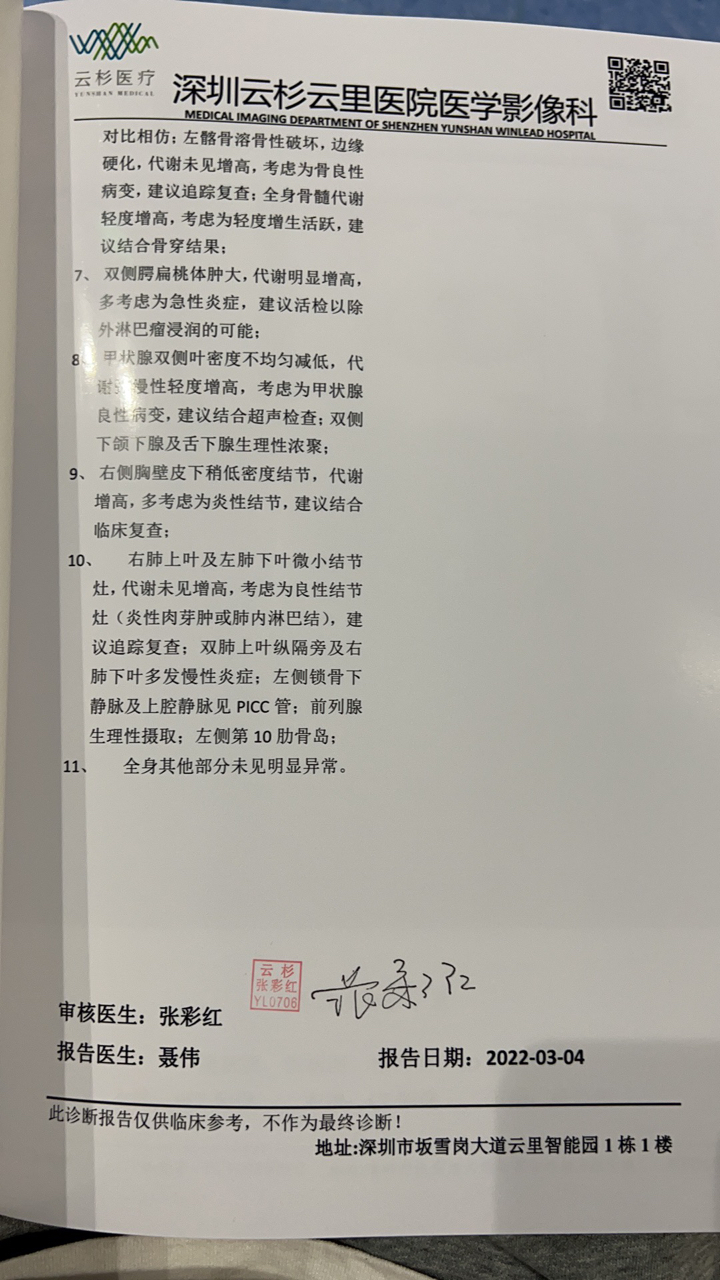 云杉医疗
YUNSHAN MEDICAL
深圳云杉云里医院医学影像科
MEDICAL IMAGING DEPARTMENT OF SHENZHEN YUNSHAN WINLEAD HOSPITAL
对比相仿；左髂骨溶骨性破坏，边缘
硬化，代谢未见增高，考虑为骨良性
病变，建议追踪复查；全身骨髓代谢
轻度增高，考虑为轻度增生活跃，建
议结合骨穿结果；
7、 双侧腭扁桃体肿大，代谢明显增高，
多考虑为急性炎症，建议活检以除
外淋巴瘤浸润的可能；
8、 甲状腺双侧叶密度不均匀减低，代
谢弥慢性轻度增高，考虑为甲状腺
良性病变，建议结合超声检查；双侧
下颌下腺及舌下腺生理性浓聚；
9、 右侧胸壁皮下稍低密度结节，代谢
增高，多考虑为炎性结节，建议结合
临床复查；
10、 右肺上叶及左肺下叶微小结节
灶，代谢未见增高，考虑为良性结节
灶（炎性肉芽肿或肺内淋巴结），建
议追踪复查；双肺上叶纵隔旁及右
肺下叶多发慢性炎症；左侧锁骨下
静脉及上腔静脉见 PICC 管；前列腺
生理性摄取；左侧第 10 肋骨岛；
11、 全身其他部分未见明显异常。
云杉
张彩红
YL0706
张彩红
审核医生：张彩红
报告医生：聂伟 报告日期：2022-03-04
此诊断报告仅供临床参考，不作为最终诊断！
地址:深圳市坂雪岗大道云里智能园 1 栋 1 楼